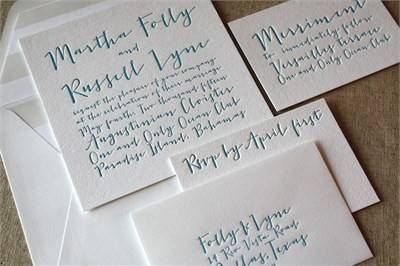 Martha Folly
and
Russell Lyne
request the pleasure of your company
at the celebration of their marriage
May fourth, Two thousand fifteen
Augustinian Cloister
One and Only Ocean Club
Paradise Island, Bahamas
Merriment
to immediately follow
Versailles Terrace
One and Only Ocean Club
Rsvp by April first
Folly & Lyne
Rio Vista Road
Dallas, Texas